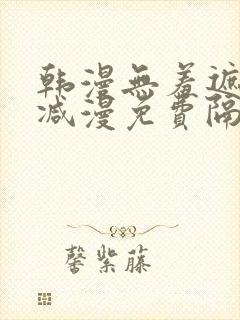 韩漫無羞遮
减漫免費隔
馨紫藤